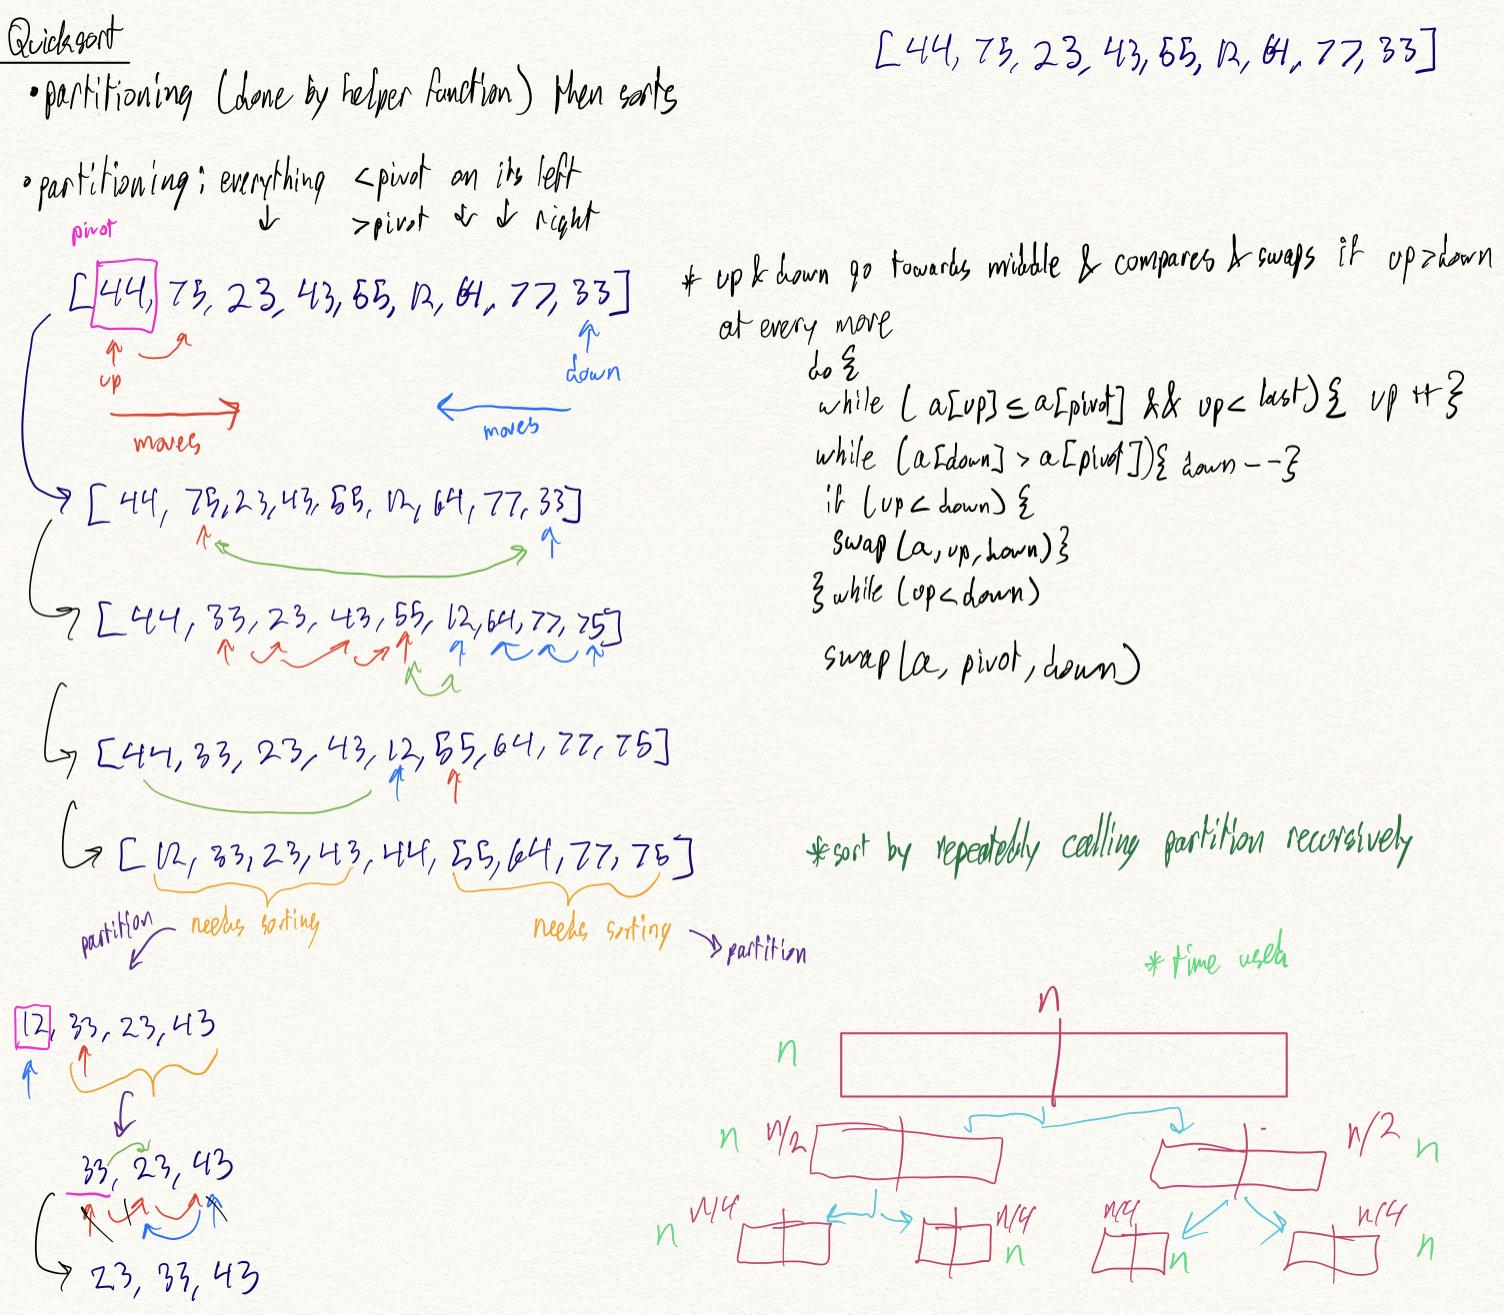 Quicksort
[44, 75, 23, 43, 55, 12, 64, 77, 33]
• partitioning (done by helper function) then sorts
• partitioning: everything <pivot on its left
↓ >pivot ↓ ↓ right
pivot
[44, 75, 23, 43, 55, 12, 64, 77, 33]
up
down
moves
moves
[44, 75, 23, 43, 55, 12, 64, 77, 33]
[44, 33, 23, 43, 55, 12, 64, 77, 75]
[44, 33, 23, 43, 12, 55, 64, 77, 75]
[12, 33, 23, 43, 44, 55, 64, 77, 75]
partition
needs sorting
needs sorting
partition
12, 33, 23, 43
33, 23, 43
23, 33, 43
* up & down go towards middle & compares & swaps if up>down
at every move
do {
while (a[up] ≤ a[pivot] && up< last){ up ++}
while (a[down] > a[pivot]){ down --}
if (up < down) {
swap (a, up, down)}
} while (up<down)
swap (a, pivot, down)
*sort by repeatedly calling partition recursively
* time used
n
n
n n/2
n/2 n
n n/4
n/4 n
n/4 n
n/4 n